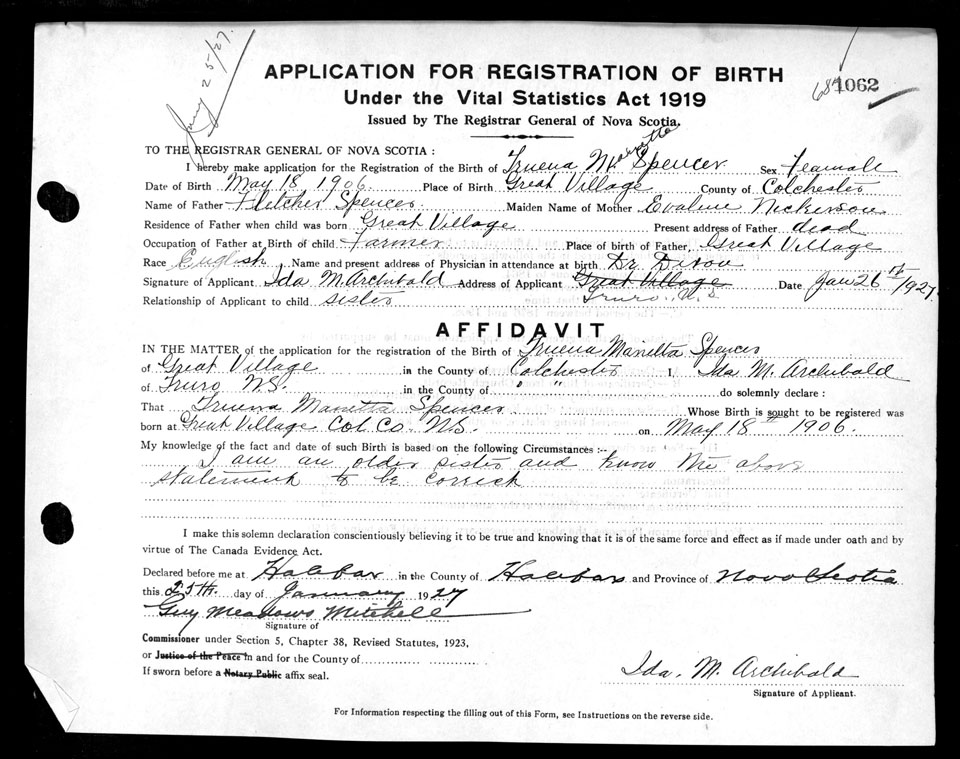 Jany 25/27.
APPLICATION FOR REGISTRATION OF BIRTH
684 1062
Under the Vital Statistics Act 1919
Issued by The Registrar General of Nova Scotia.
TO THE REGISTRAR GENERAL OF NOVA SCOTIA :
I hereby make application for the Registration of the Birth of Truena Maretta Spencer Sex Feamale
Date of Birth May 18 1906 Place of Birth Great Village County of Colchester
Name of Father Fletcher Spencer Maiden Name of Mother Evaline Nickerson
Residence of Father when child was born Great Village Present address of Father dead
Occupation of Father at Birth of child Farmer Place of birth of Father, Great Village
Race English Name and present address of Physician in attendance at birth Dr Dixon
Signature of Applicant Ida M. Archibald Address of Applicant Great Village Date Jan 26th/1927
Relationship of Applicant to child sister Truro. N.S
AFFIDAVIT
IN THE MATTER of the application for the registration of the Birth of Truena Maretta Spencer
of Great Village in the County of Colchester I, Ida M. Archibald
of Truro N.S. in the County of " " do solemnly declare :
That Truena Maretta Spencer Whose Birth is sought to be registered was
born at Great Village Col. Co. N.S. on May 18 1906.
My knowledge of the fact and date of such Birth is based on the following Circumstances :-
I am an older sister and know the above
statement to be correck
I make this solemn declaration conscientiously believing it to be true and knowing that it is of the same force and effect as if made under oath and by
virtue of The Canada Evidence Act.
Declared before me at Halifax in the County of Halifax and Province of Nova Scotia
this 25th. day of January 1927
Guy Meadows Mitchell
Signature of
Commissioner under Section 5, Chapter 38, Revised Statutes, 1923,
or Justice of the Peace in and for the County of
If sworn before a Notary Public affix seal.
Ida. M. Archibald
Signature of Applicant.
For Information respecting the filling out of this Form, see Instructions on the reverse side.